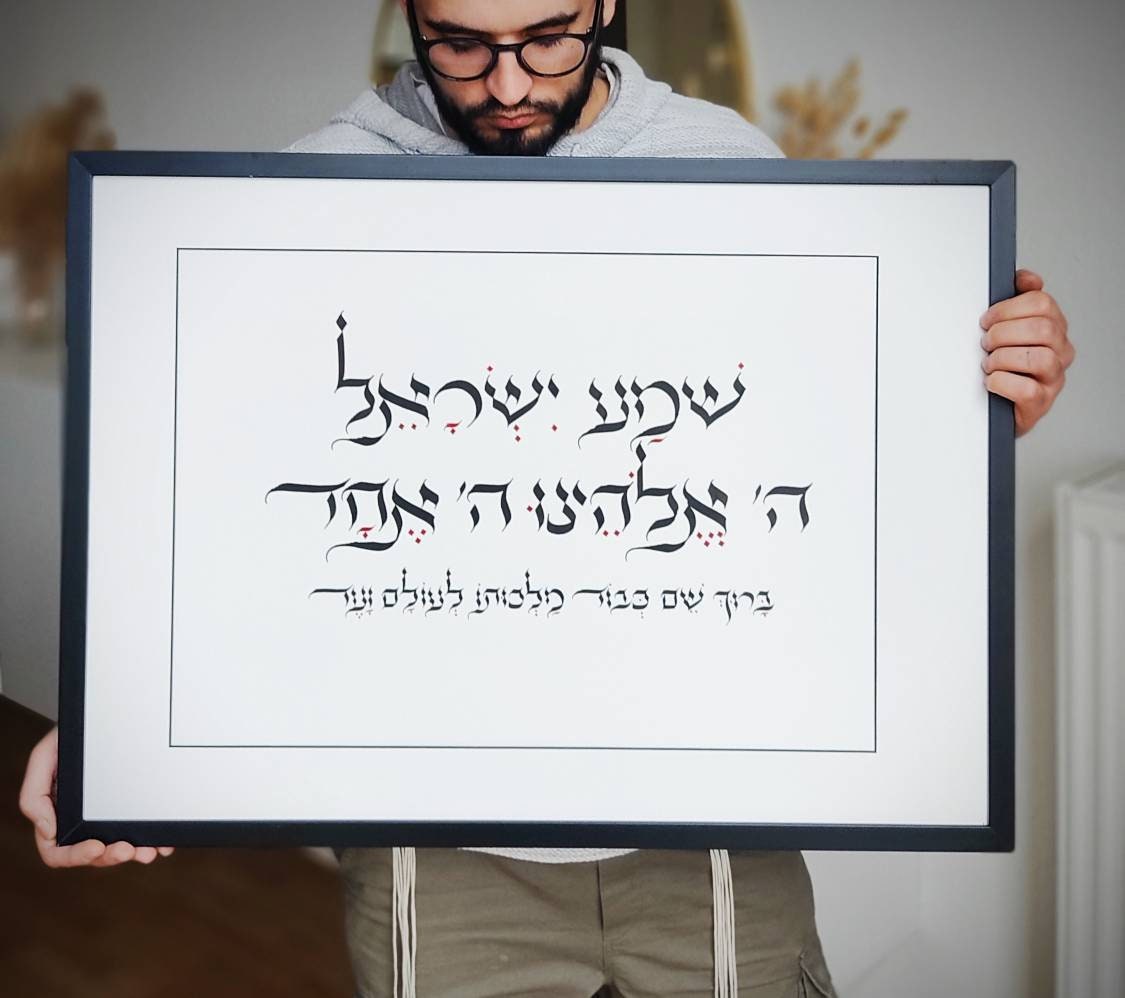 שׁמַע יִשְׂרָאֵל
ה' אֱלֹהֵינוּ ה' אֶחָד
בָּרוּךְ שֵׁם כְּבוֹד מַלְכוּתוֹ לְעוֹלָם וָעֶד